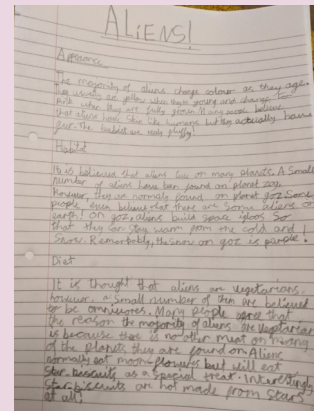 ALIENS!
Appearance
The majority of aliens change colour as they age
usually are yellow when young and change to
pink when they are fully grown. Many people believe
that aliens have skin like humans but they actually have
fur. The babies are really fluffy!
Habitat
It is believed that aliens live on many planets. A small
number of aliens have been found on planet zog.
However, they are normally found on planet goz. Some
people even believe that there are some aliens on
earth! On goz, aliens build space igloos so
that they can stay warm from the cold and
snow. Remarkably, the snow on goz is purple!
Diet
It is thought that aliens are vegetarians.
however, a small number of them are believed
to be omnivores. Many people agree that
the reason the majority of aliens are vegetarian
is because there is no other meat on many
of the planets they are found on. Aliens
normally eat moon flowers but will eat
star bescuits as a special treat. Interestingly,
star biscuits are not made from stars
at all!